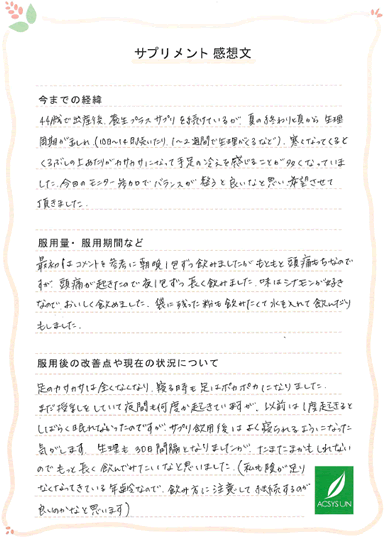 サプリメント 感想文
今までの経緯
44歳で出産後、養生プラスサプリを続けているが、夏の終わり頃から生理
周期がみだれ(10日〜14日続いたり、1〜2週間で生理がくるなど)、寒くなってくると
くるぶしの上あたりがカサカサになって手足の冷えを感じることが多くなっていま
した。今回のモニター参加でバランスが整うと良いなと思い希望させて
頂きました。
服用量・服用期間など
最初はコメントを参考に朝晩1包ずつ飲みましたがもともと頭痛もちなので
すが、頭痛が起きたので夜1包ずつ長く飲みました。味はシナモンが好き
なのでおいしく飲めました。袋に残った粉も飲みたくて水を入れて飲んだり
もしました。
服用後の改善点や現在の状況について
足のカサカサは全くなくなり、寝る時も足はポカポカになりました。
まだ授乳をしていて夜間も何度か起きていますが、以前は1度起きると
しばらく眠れなかったのですがサプリ飲用後はよく寝られるようになった
気がします。生理も30日間隔となりましたが、たまたまかもしれない
のでもっと長く飲んでみたいなと思いました。(私も陰が足り
なくなってきている年齢なので、飲み方に注意して継続するのが
良いのかなと思います)
ACSYSUN